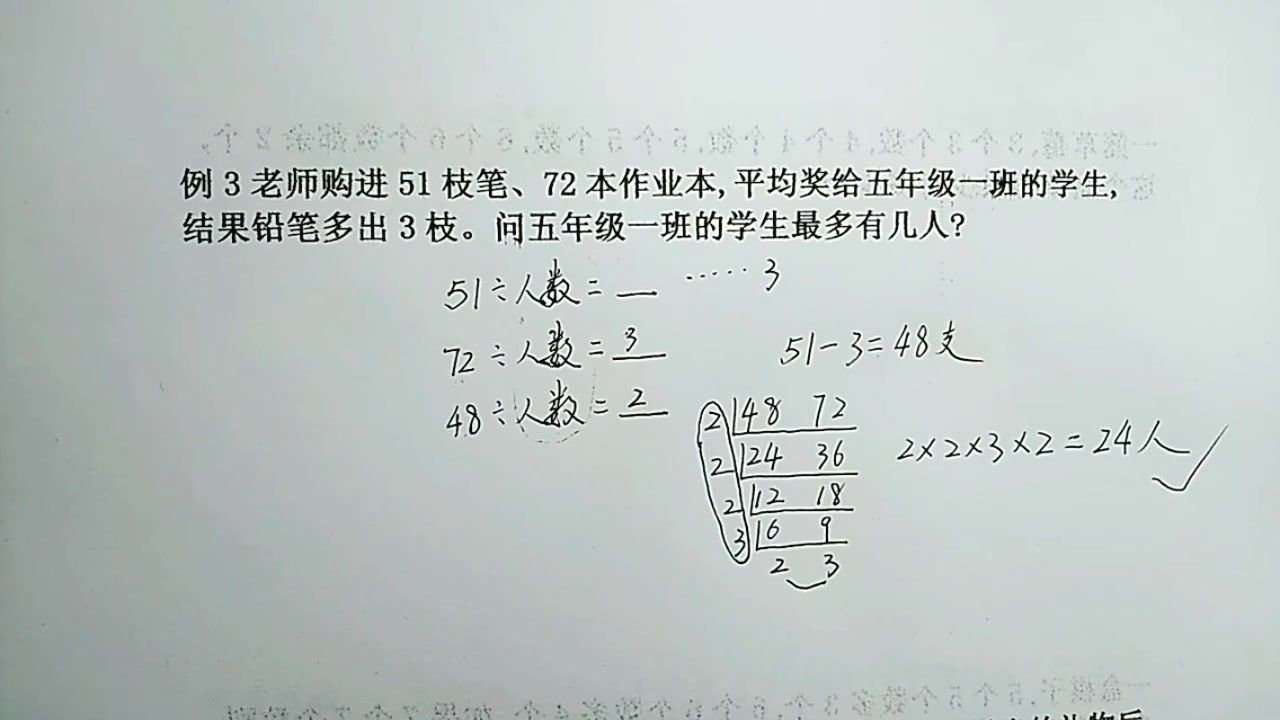 例 3 老师购进 51 枝笔、72 本作业本,平均奖给五年级一班的学生,
结果铅笔多出 3 枝。问五年级一班的学生最多有几人?
51÷人数= ······3
72÷人数=3
51-3=48支
48÷人数=2
2 48 72
2 24 36
2 12 18
3 6 9
2 3
2×2×3×2=24人✓